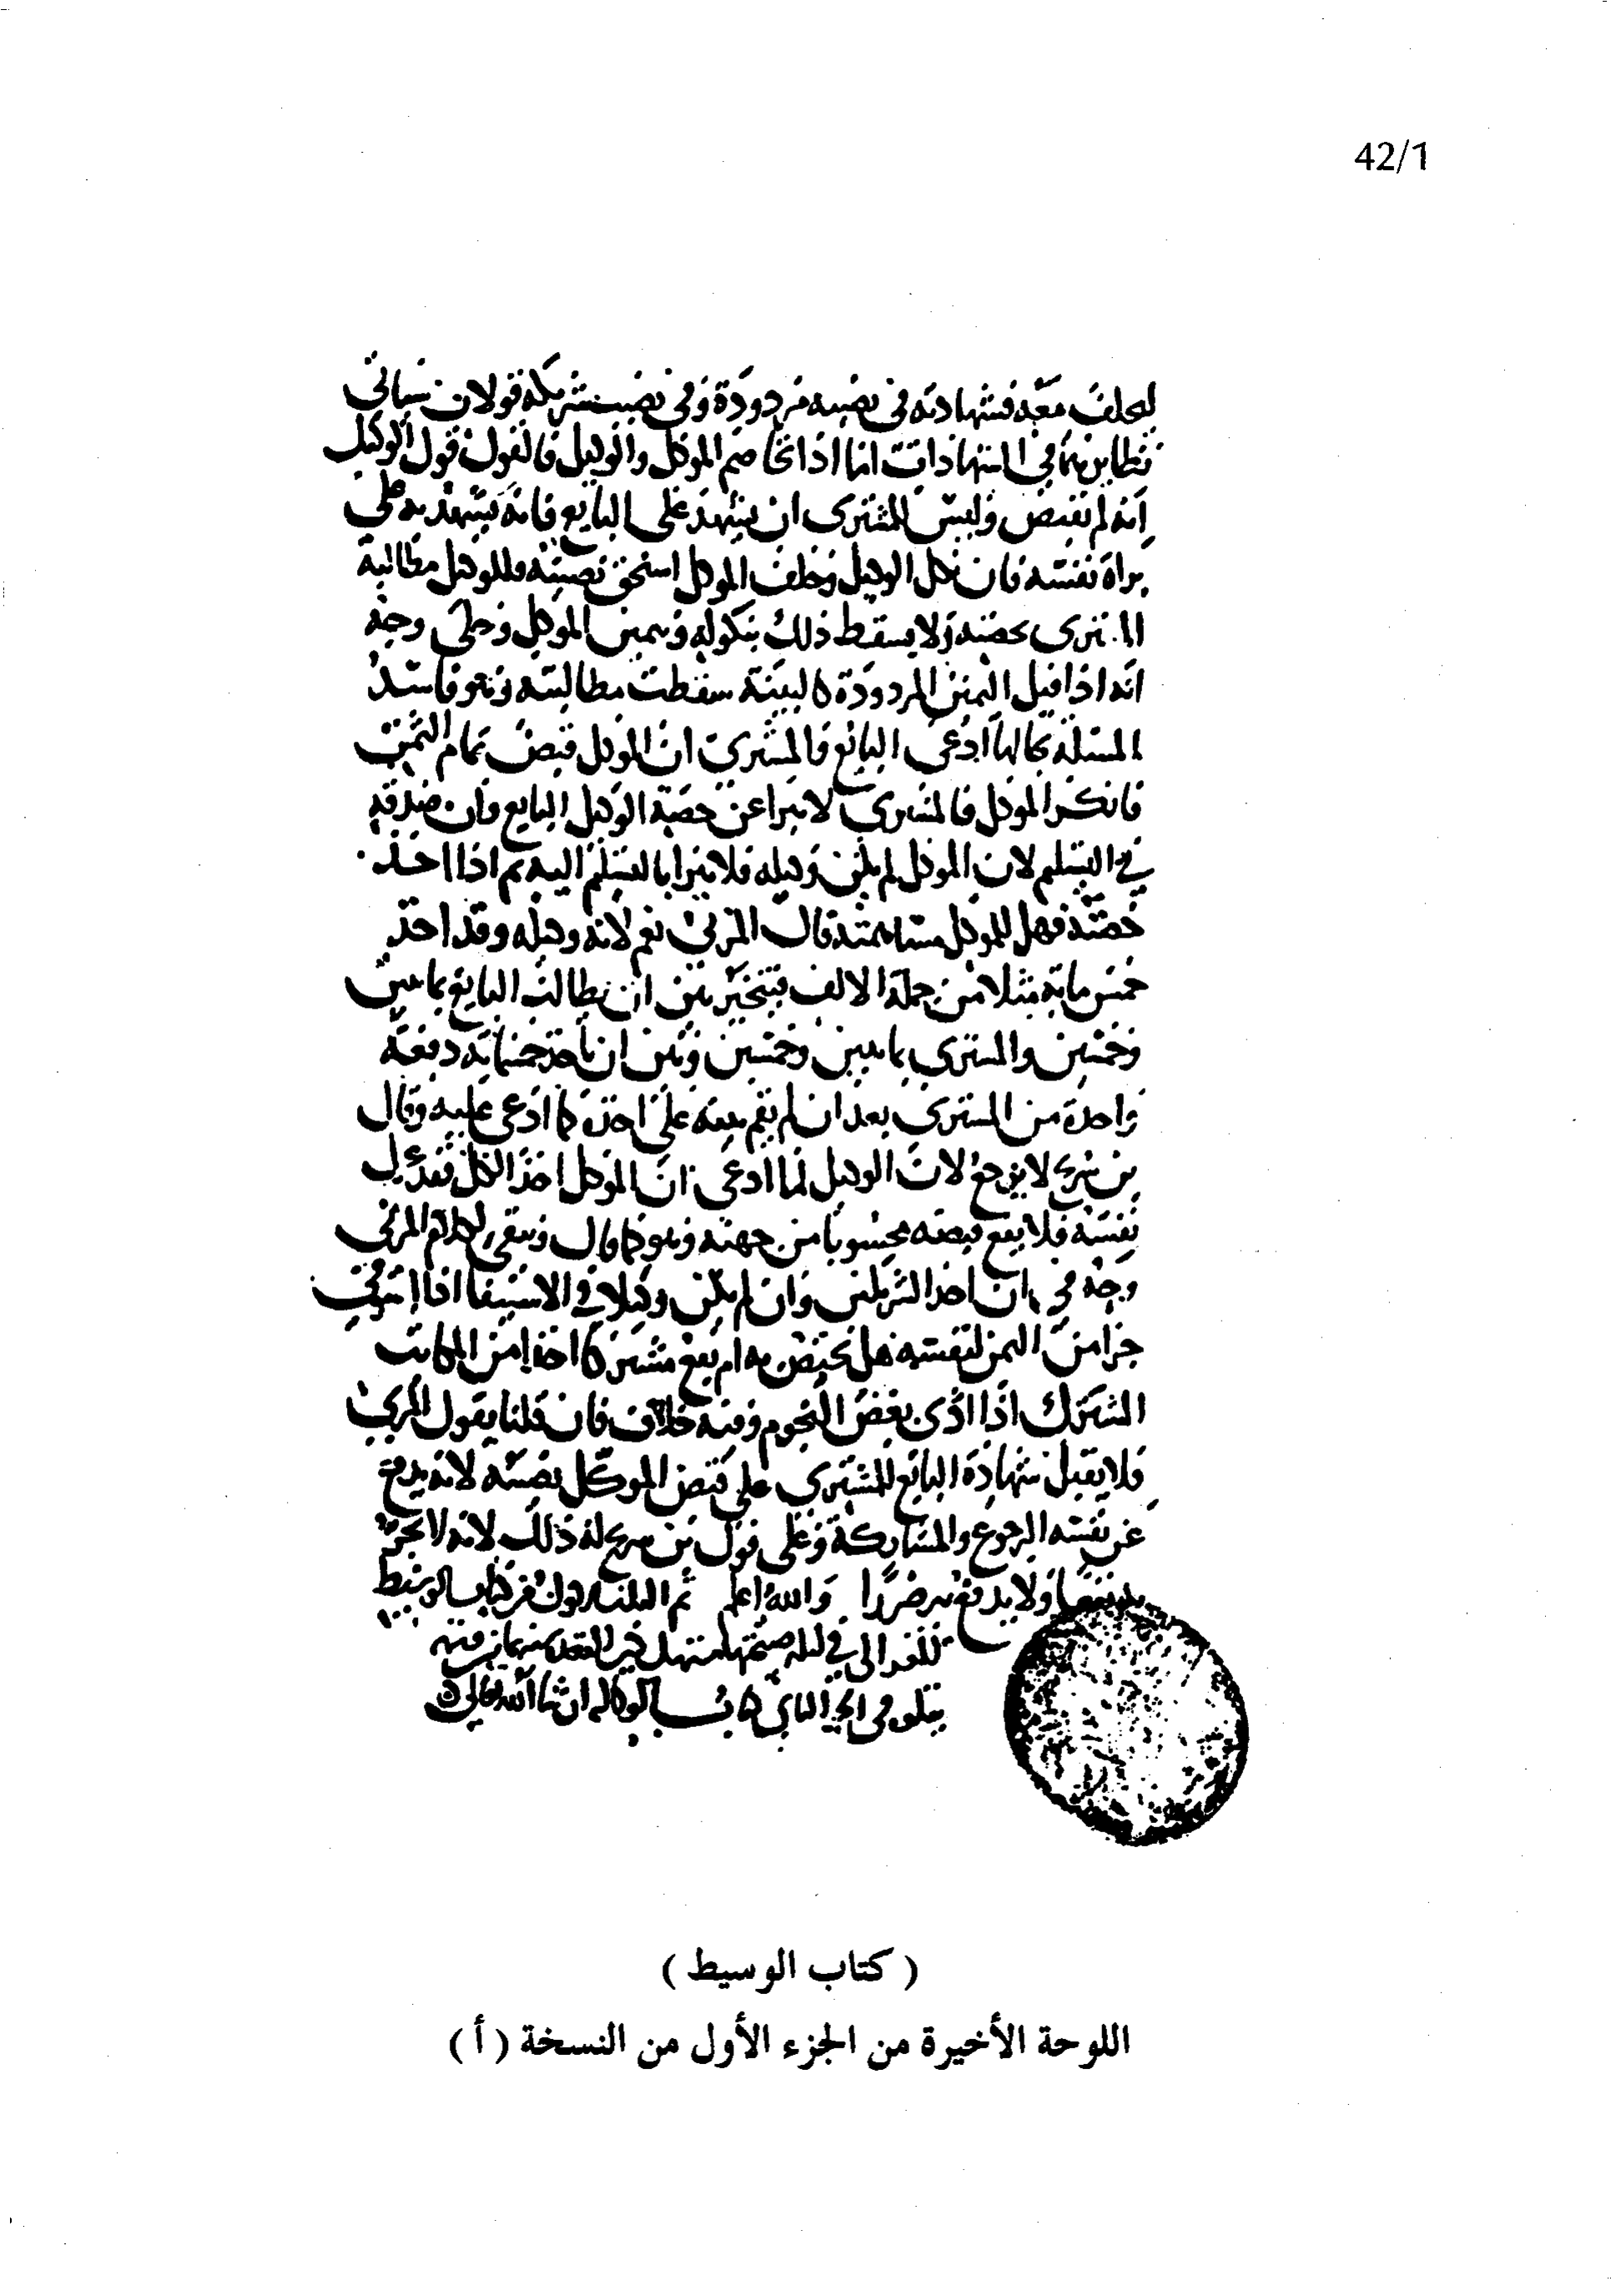 42/1
ليحلف معه فشهادته في نصيبه مردودة وفي نصيب شريكه قولان سياتي
نظايرهما في الشهادات اما اذا تخاصم الموكل والوكيل فالقول قول الوكيل
انه لم يقبض وليس للمشتري ان يشهد على البايع فانه يشهد به على
براة نفسه فان نكل الوكيل وحلف الموكل استحق نصيبه وللوكيل مطالبة
المشتري بحصته ولا يسقط ذلك بنكوله ويمين الموكل وحكى وجه
انه اذا قيل اليمين المردودة كالبينة سقطت مطالبته وهو فاسد
المسئلة بحالها ادعى البائع فالمشتري ان الموكل قبض تمام الثمن
فانكر الموكل فالمشتري لا يبرا عن حصة الوكيل البايع وان صدقه
في التسليم لان الموكل لم يكن وكيله فلا يبرا بالتسليم اليه ثم اذا اخذ
حصته فهل للموكل مساهمته قال المزني نعم لانه وكيله وقد اخذ
خمس ماية مثلا من جملة الالف فيتخير بين ان يطالب البايع بمايتين
وخمسين والمشتري بمايتين وخمسين وبين ان ياخذ خمسماية دفعة
واحدة من المشتري بعد ان لم يقم بينة على اخذه كما ادعى عليه وقال
بن سريج لا يرجع لان الوكيل لما ادعى ان الموكل اخذ الكل فقد عزل
نفسه فلا يقع قبضه محسوبا من جهته وهو كما قال ويبقى لكلام المزني
وجه في ان احد الشريكين وان لم يكن وكيلا في الاستيفا اذا استوفى
جزا من الثمن لنفسه هل يختص به ام يقع مشتركا اخذا من المكاتب
المشترك اذا ادى بعض النجوم وفيه خلاف فان قلنا بقول المزني
فلا يقبل شهادة البائع للمشتري على قبض الموكل نصيبه لانه يدفع
عن نفسه الرجوع والمشاركة وعلى قول بن سريج له ذلك لانه لا يجر
ولا يدفع ضررا والله اعلم تم من كتاب الوسيط
في
يتلوه في الجز الثاني كتاب الوكاله ان شا الله تعالى
( كتاب الوسيط )
اللوحة الأخيرة من الجزء الأول من النسخة ( أ )